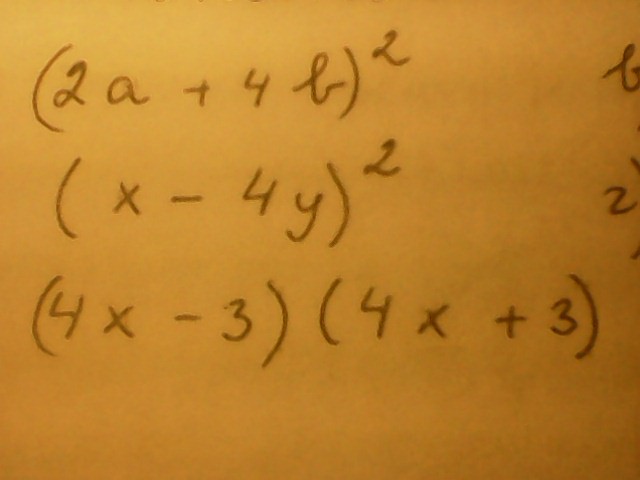 (2a + 4b)² b
(x - 4y)² г)
(4x - 3)(4x + 3)